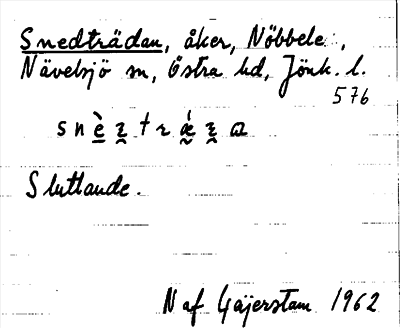 Snedträdan, åker, Nöbbele,
Nävelsjö sn, Östra hd, Jönk. l.
576
Sluttande.
N af Gäjerstam 1962